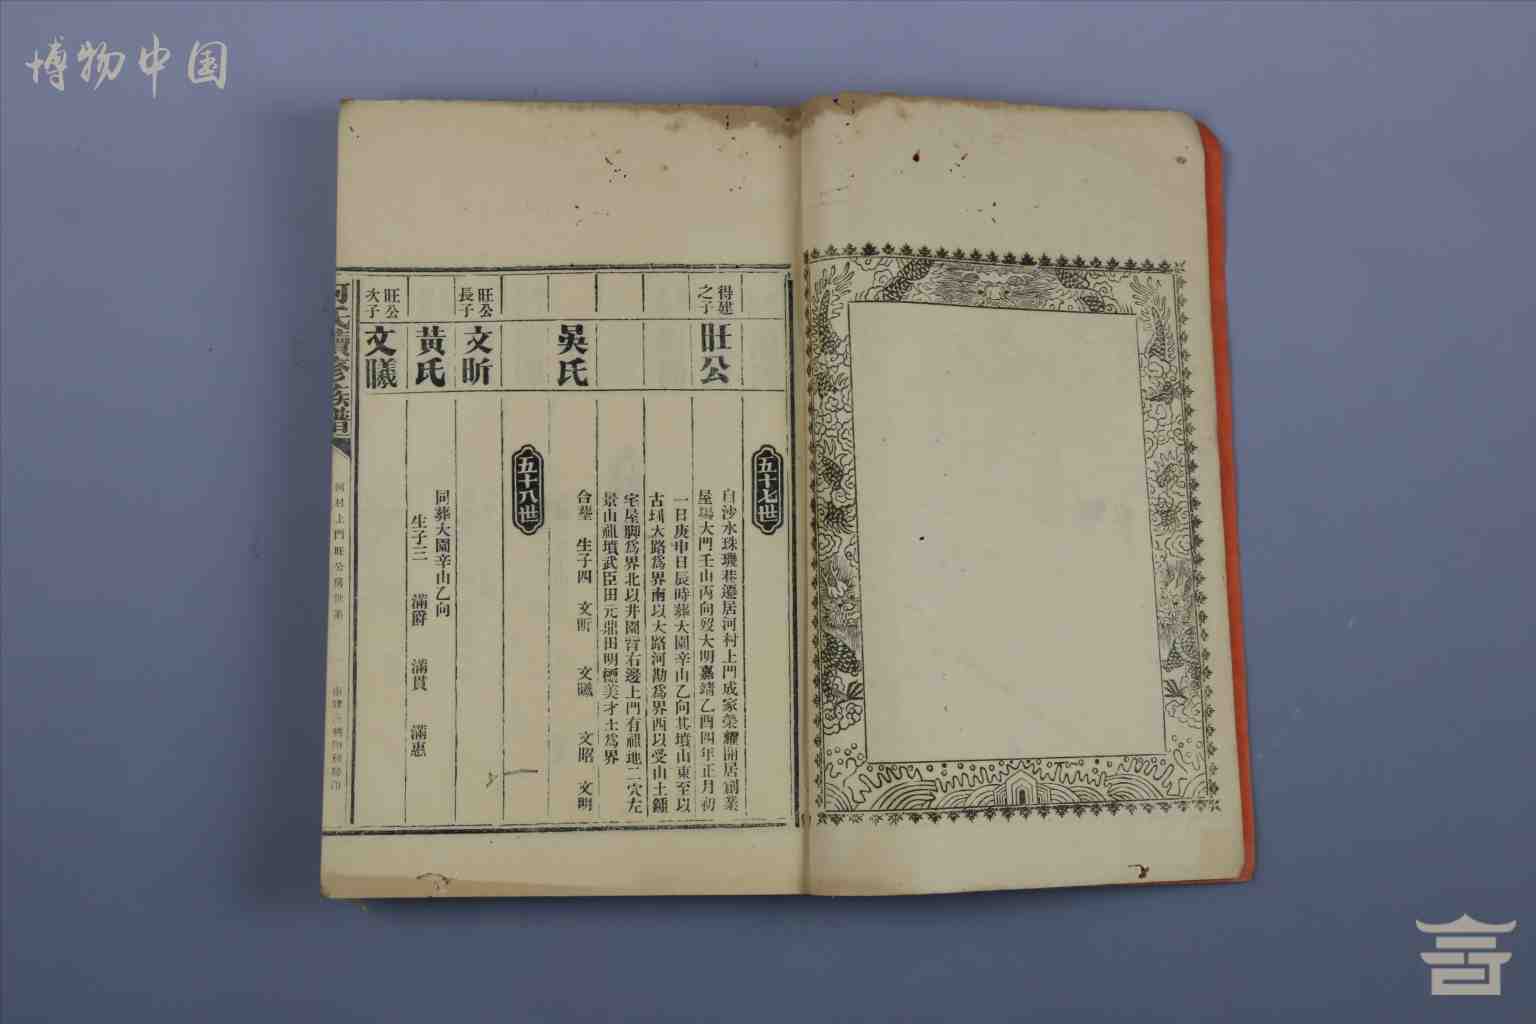 博物中国
五十七世
得建之子
旺公
自沙水珠璣巷遷居河村上門成家榮耀開居創業
屋場大門壬山丙向歿大明嘉靖乙酉四年正月初
一日庚申日辰時葬大園辛山乙向其墳山東至以
古圳大路為界南以大路河勘為界西以受山土鍾
宅屋腳為界北以井園背右邊上門有祖地二穴左
景山祖墳武臣田元鼎田明標美才土為界
吳氏
合塋 生子四 文昕 文曦 文昭 文明
五十八世
旺公長子
文昕
同葬大園辛山乙向
黃氏
生子三 滿爵 滿貫 滿惠
旺公次子
文曦
何氏續修族譜
河村上門旺公房世系